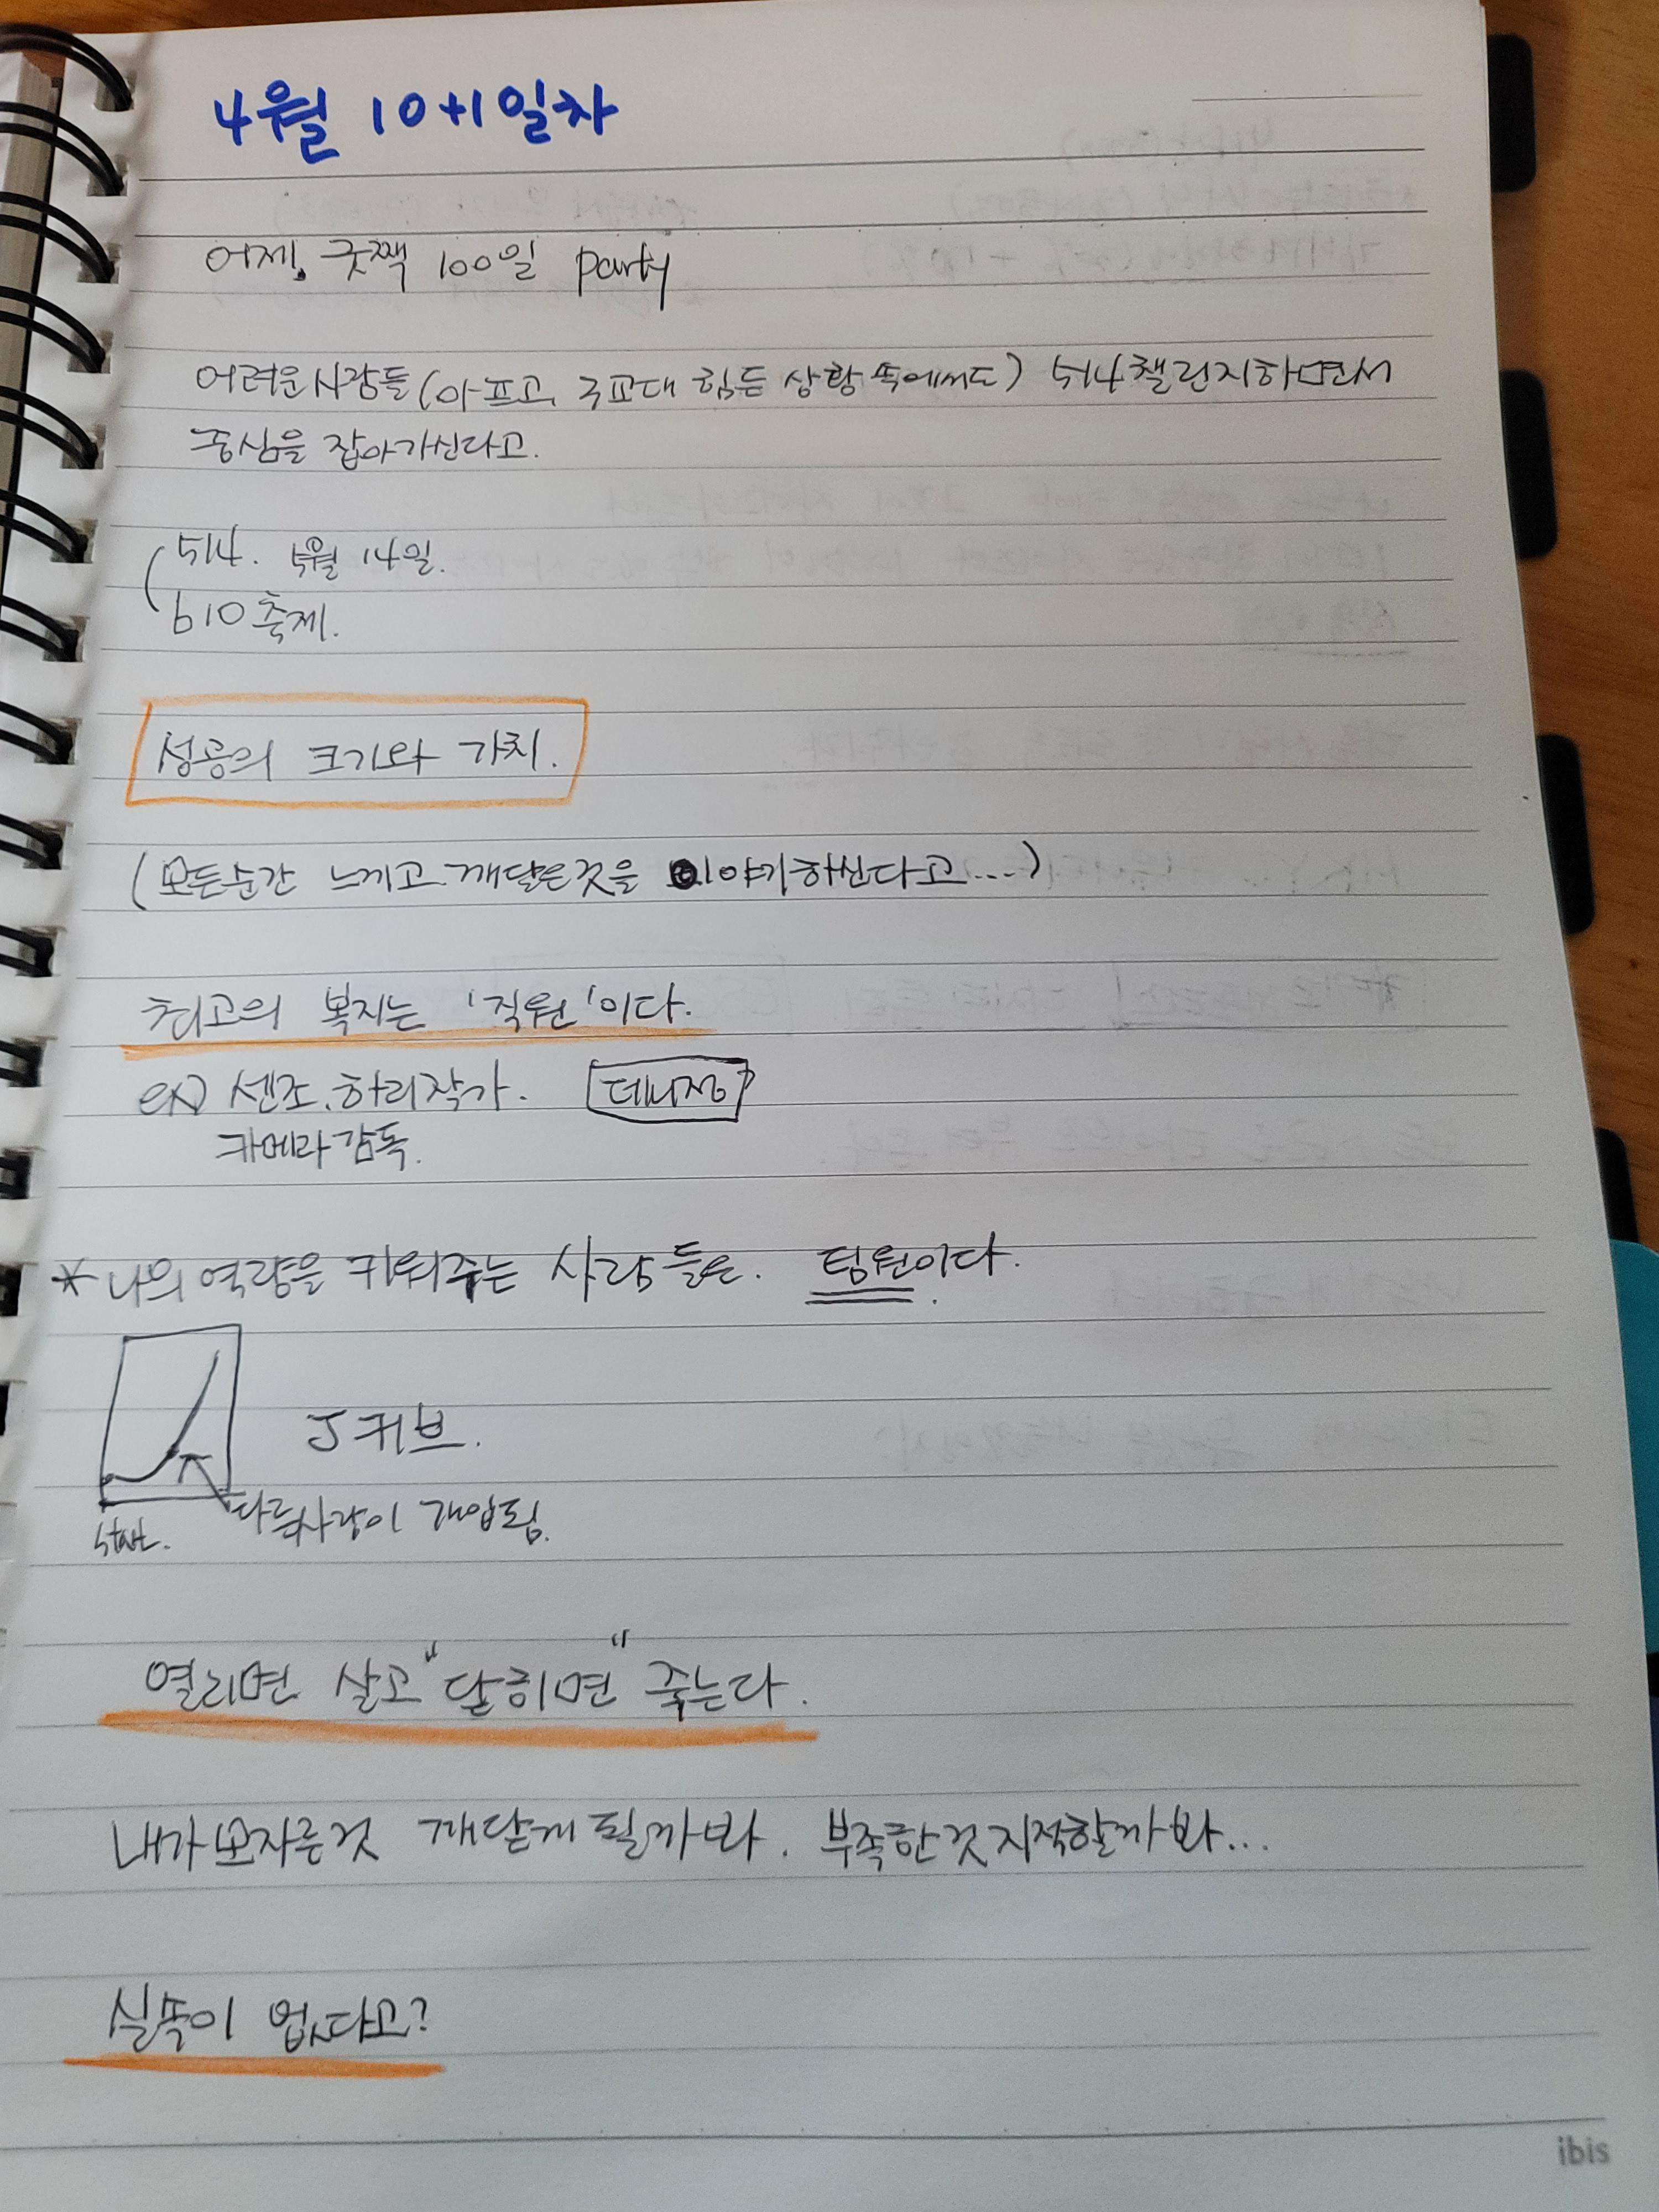 4월 10+1일차
어제, 굿짹 100일 party
어려운사람들(아프고, 3교대 힘든 상황 속에서도) 514챌린지하면서
중심을 잡아가신다고.
514. 5월 14일.
610축제.
성공의 크기와 가치.
(모든순간 느끼고 깨달은것을 이야기하신다고....)
최고의 복지는 '직원'이다.
ex) 센조, 하리작가. 데니정
카메라감독.
*나의 역량을 키워주는 사람들은. 팀원이다.
J커브.
start. 다른사람이 개입됨.
열리면 살고 "닫히면" 죽는다.
내가모자른것 깨닫게 될까봐. 부족한것지적할까봐...
실속이 없다고?
ibis